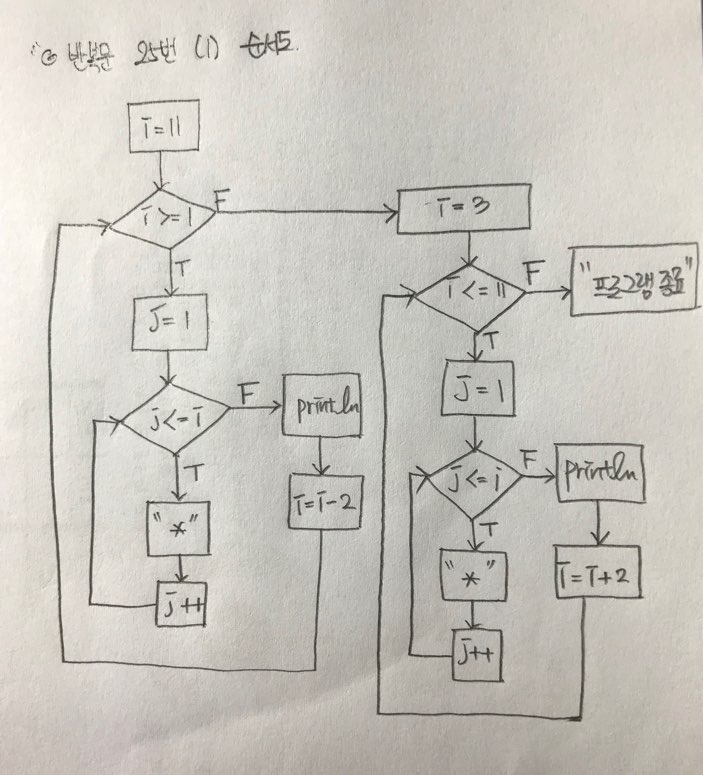 반복문 25번 (1) 순서도.
i=11
i>=1
F
T
j=1
j<=i
F
println
T
i=i-2
"*"
j++
i=3
i<=11
F
"프로그램 종료"
T
j=1
j<=i
F
println
T
i=i+2
"*"
j++